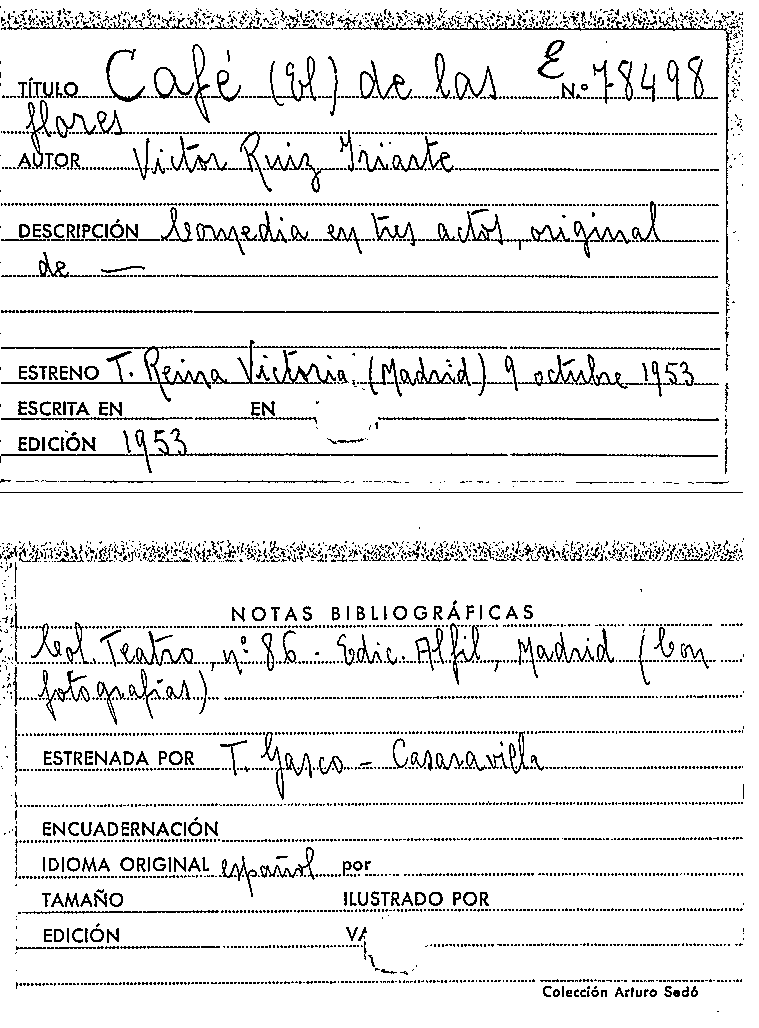 TÍTULO Café (El) de las E N.º 78498
flores
AUTOR Victor Ruiz Iriarte
DESCRIPCIÓN Comedia en tres actos, original
de —
ESTRENO T. Reina Victoria (Madrid) 9 octubre 1953
ESCRITA EN EN
EDICIÓN 1953
NOTAS BIBLIOGRÁFICAS
Col. Teatro, nº 86 - Edic. Alfil, Madrid (Con
fotografías)
ESTRENADA POR T. Gasco - Casaravilla
ENCUADERNACIÓN
IDIOMA ORIGINAL español por
TAMAÑO ILUSTRADO POR
EDICIÓN
Colección Arturo Sedó